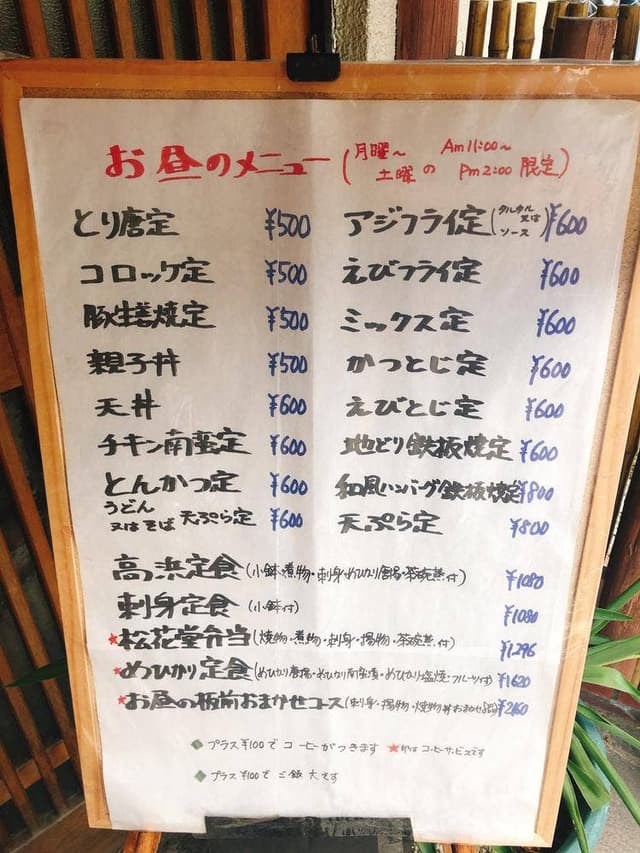 お昼のメニュー(月曜〜土曜の Am11:00〜Pm2:00 限定)
とり唐定 ¥500
コロッケ定 ¥500
豚生姜焼定 ¥500
親子丼 ¥500
天丼 ¥600
チキン南蛮定 ¥600
とんかつ定 ¥600
うどん又はそば 天ぷら定 ¥600
アジフライ定(タルタル又はソース) ¥600
えびフライ定 ¥600
ミックス定 ¥600
かつとじ定 ¥600
えびとじ定 ¥600
地どり鉄板焼定 ¥600
和風ハンバーグ鉄板焼定 ¥800
天ぷら定 ¥800
高浜定食(小鉢・煮物・刺身・めひかり唐揚・茶碗蒸付) ¥1080
刺身定食(小鉢付) ¥1080
★松花堂弁当(焼物・煮物・刺身・揚物・茶碗蒸付) ¥1296
★めひかり定食(めひかり唐揚・めひかり南蛮漬・めひかり塩焼・フルーツ付) ¥1620
★お昼の板前おまかせコース(刺身・揚物・焼物 ¥2160
◆プラス¥100で コーヒーがつきます ★印は コーヒーサービスです
◆プラス¥100で ご飯 大です